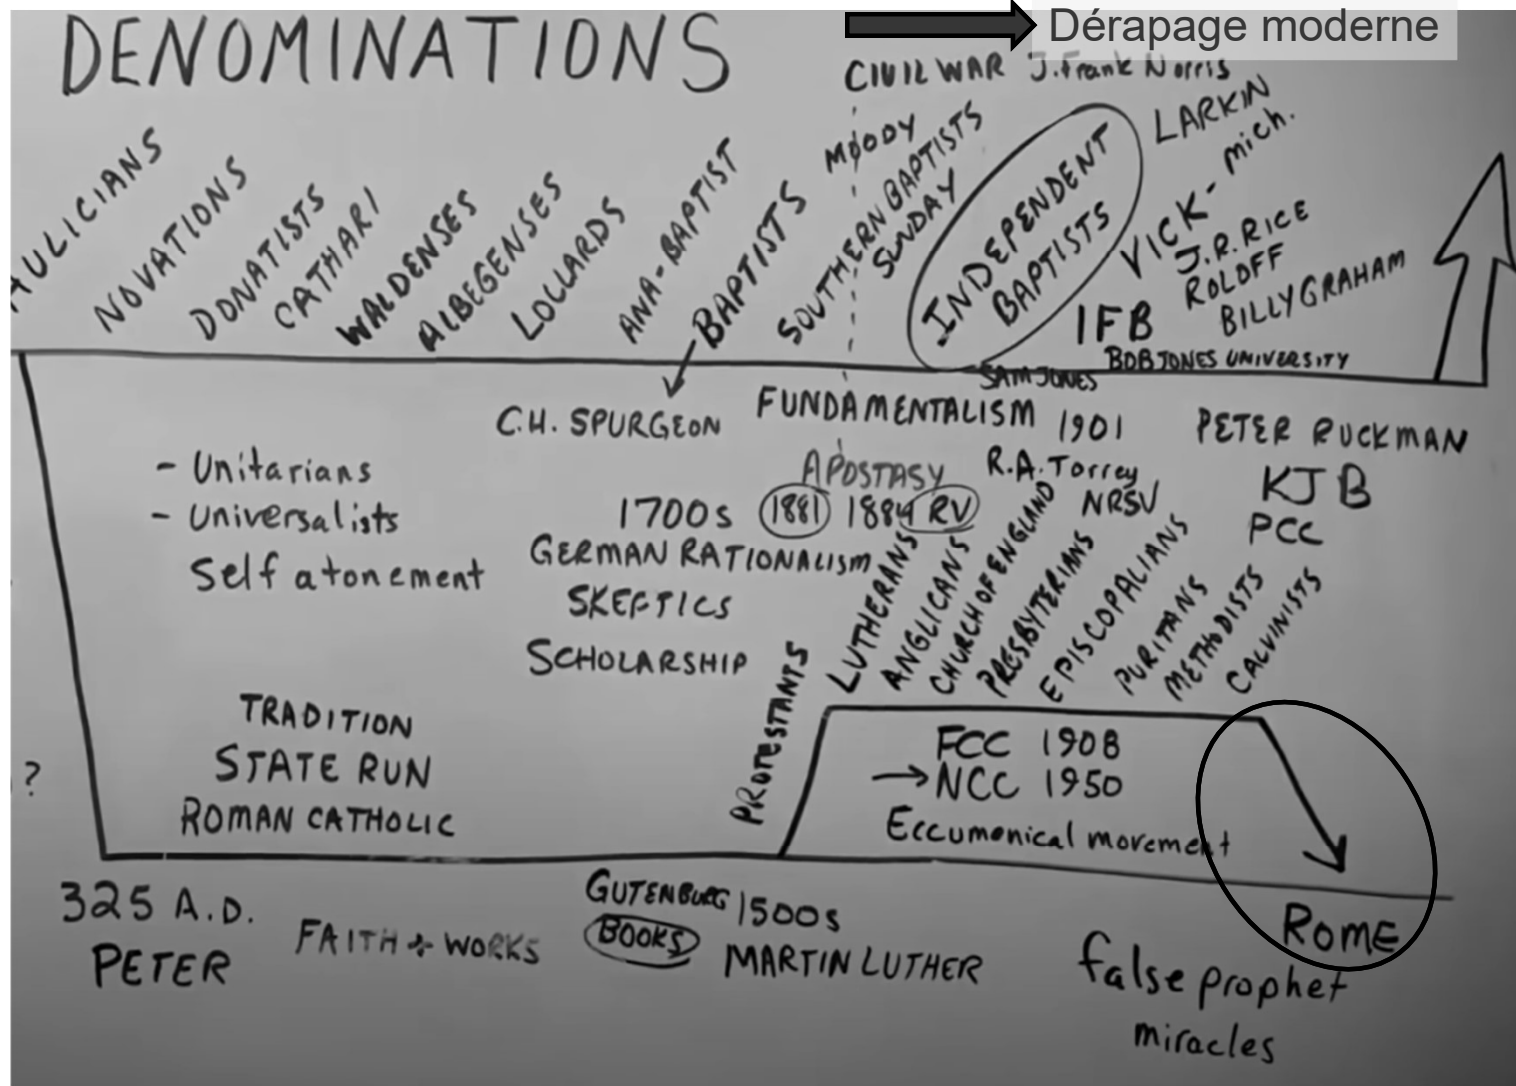 DENOMINATIONS
Dérapage moderne
CIVIL WAR
J. Frank Norris
AULICIANS
NOVATIONS
DONATISTS
CATHARI
WALDENSES
ALBEGENSES
LOLLARDS
ANA-BAPTIST
BAPTISTS
MOODY
SOUTHERN BAPTISTS
SUNDAY
INDEPENDENT
BAPTISTS
LARKIN
VICK - mich.
J.R. RICE
ROLOFF
BILLY GRAHAM
IFB
BOB JONES UNIVERSITY
SAM JONES
C.H. SPURGEON
FUNDAMENTALISM
1901
PETER RUCKMAN
- Unitarians
APOSTASY
R.A. Torrey
KJB
- Universalists
1700s
1881
1884 RV
NRSV
PCC
Self atonement
GERMAN RATIONALISM
SKEPTICS
SCHOLARSHIP
PROTESTANTS
LUTHERANS
ANGLICANS
CHURCH OF ENGLAND
PRESBYTERIANS
EPISCOPALIANS
PURITANS
METHODISTS
CALVINISTS
TRADITION
STATE RUN
ROMAN CATHOLIC
?
FCC 1908
NCC 1950
Eccumenical movement
325 A.D.
PETER
FAITH + WORKS
GUTENBURG
BOOKS
1500s
MARTIN LUTHER
ROME
false prophet
miracles